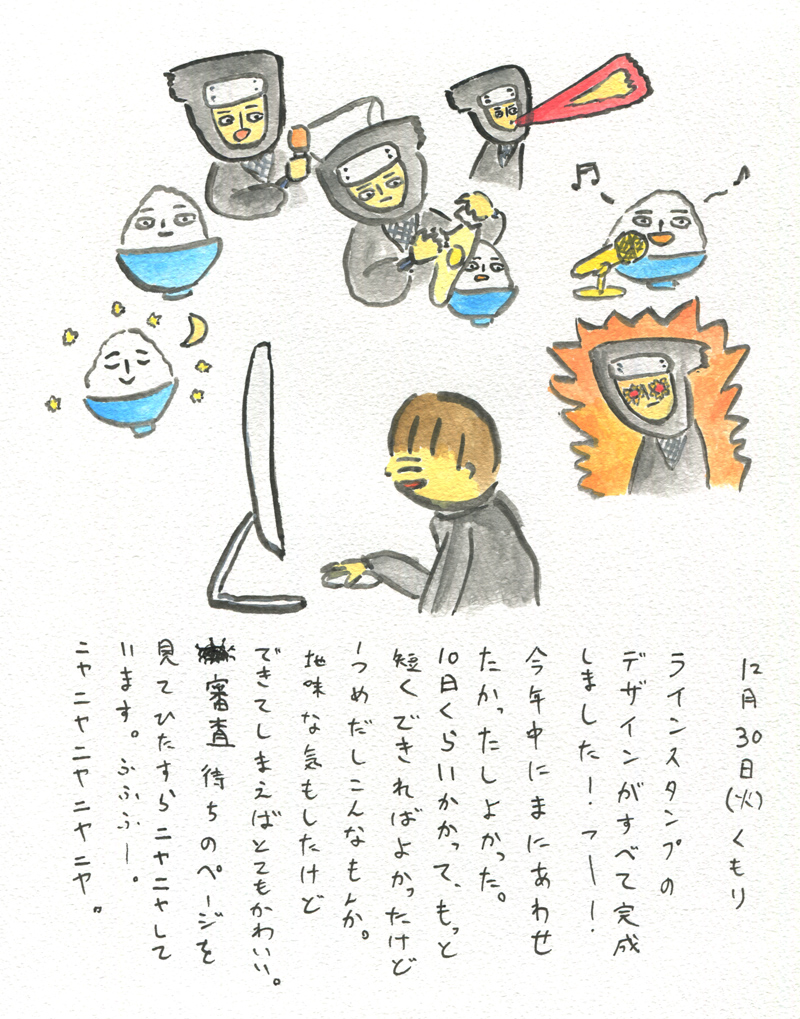 12月30日(火)くもり
ラインスタンプの
デザインがすべて完成
しました!フー!
今年中にまにあわせ
たかったしよかった。
10日くらいかかって、もっと
短くできればよかったけど
1つめだしこんなもんか。
地味な気もしたけど
できてしまえばとてもかわいい。
審査待ちのページを
見てひたすらニヤニヤして
います。ふふふー。
ニヤニヤニヤニヤニヤ。